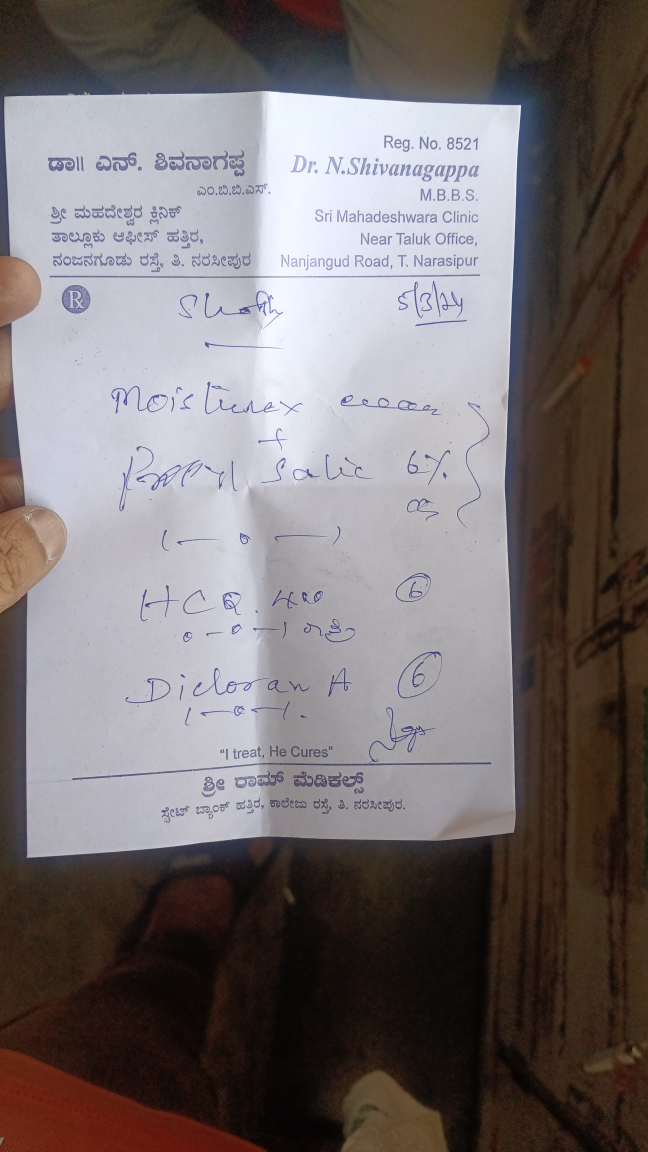 ಡಾ॥ ಎನ್. ಶಿವನಾಗಪ್ಪ
ಎಂ.ಬಿ.ಬಿ.ಎಸ್.
ಶ್ರೀ ಮಹದೇಶ್ವರ ಕ್ಲಿನಿಕ್
ತಾಲ್ಲೂಕು ಆಫೀಸ್ ಹತ್ತಿರ,
ನಂಜನಗೂಡು ರಸ್ತೆ, ತಿ. ನರಸೀಪುರ
Reg. No. 8521
Dr. N.Shivanagappa
M.B.B.S.
Sri Mahadeshwara Clinic
Near Taluk Office,
Nanjangud Road, T. Narasipur
Rx
5/3/24
Moisturex
+
Salic 6%
1 — 0 — 1
HCQ. 400 6
0 — 0 — 1 ರಾತ್ರಿ
Dicloran A 6
1 — 0 — 1.
"I treat, He Cures"
ಶ್ರೀ ರಾಮ್ ಮೆಡಿಕಲ್ಸ್
ಸ್ಟೇಟ್ ಬ್ಯಾಂಕ್ ಹತ್ತಿರ, ಕಾಲೇಜು ರಸ್ತೆ, ತಿ. ನರಸೀಪುರ.